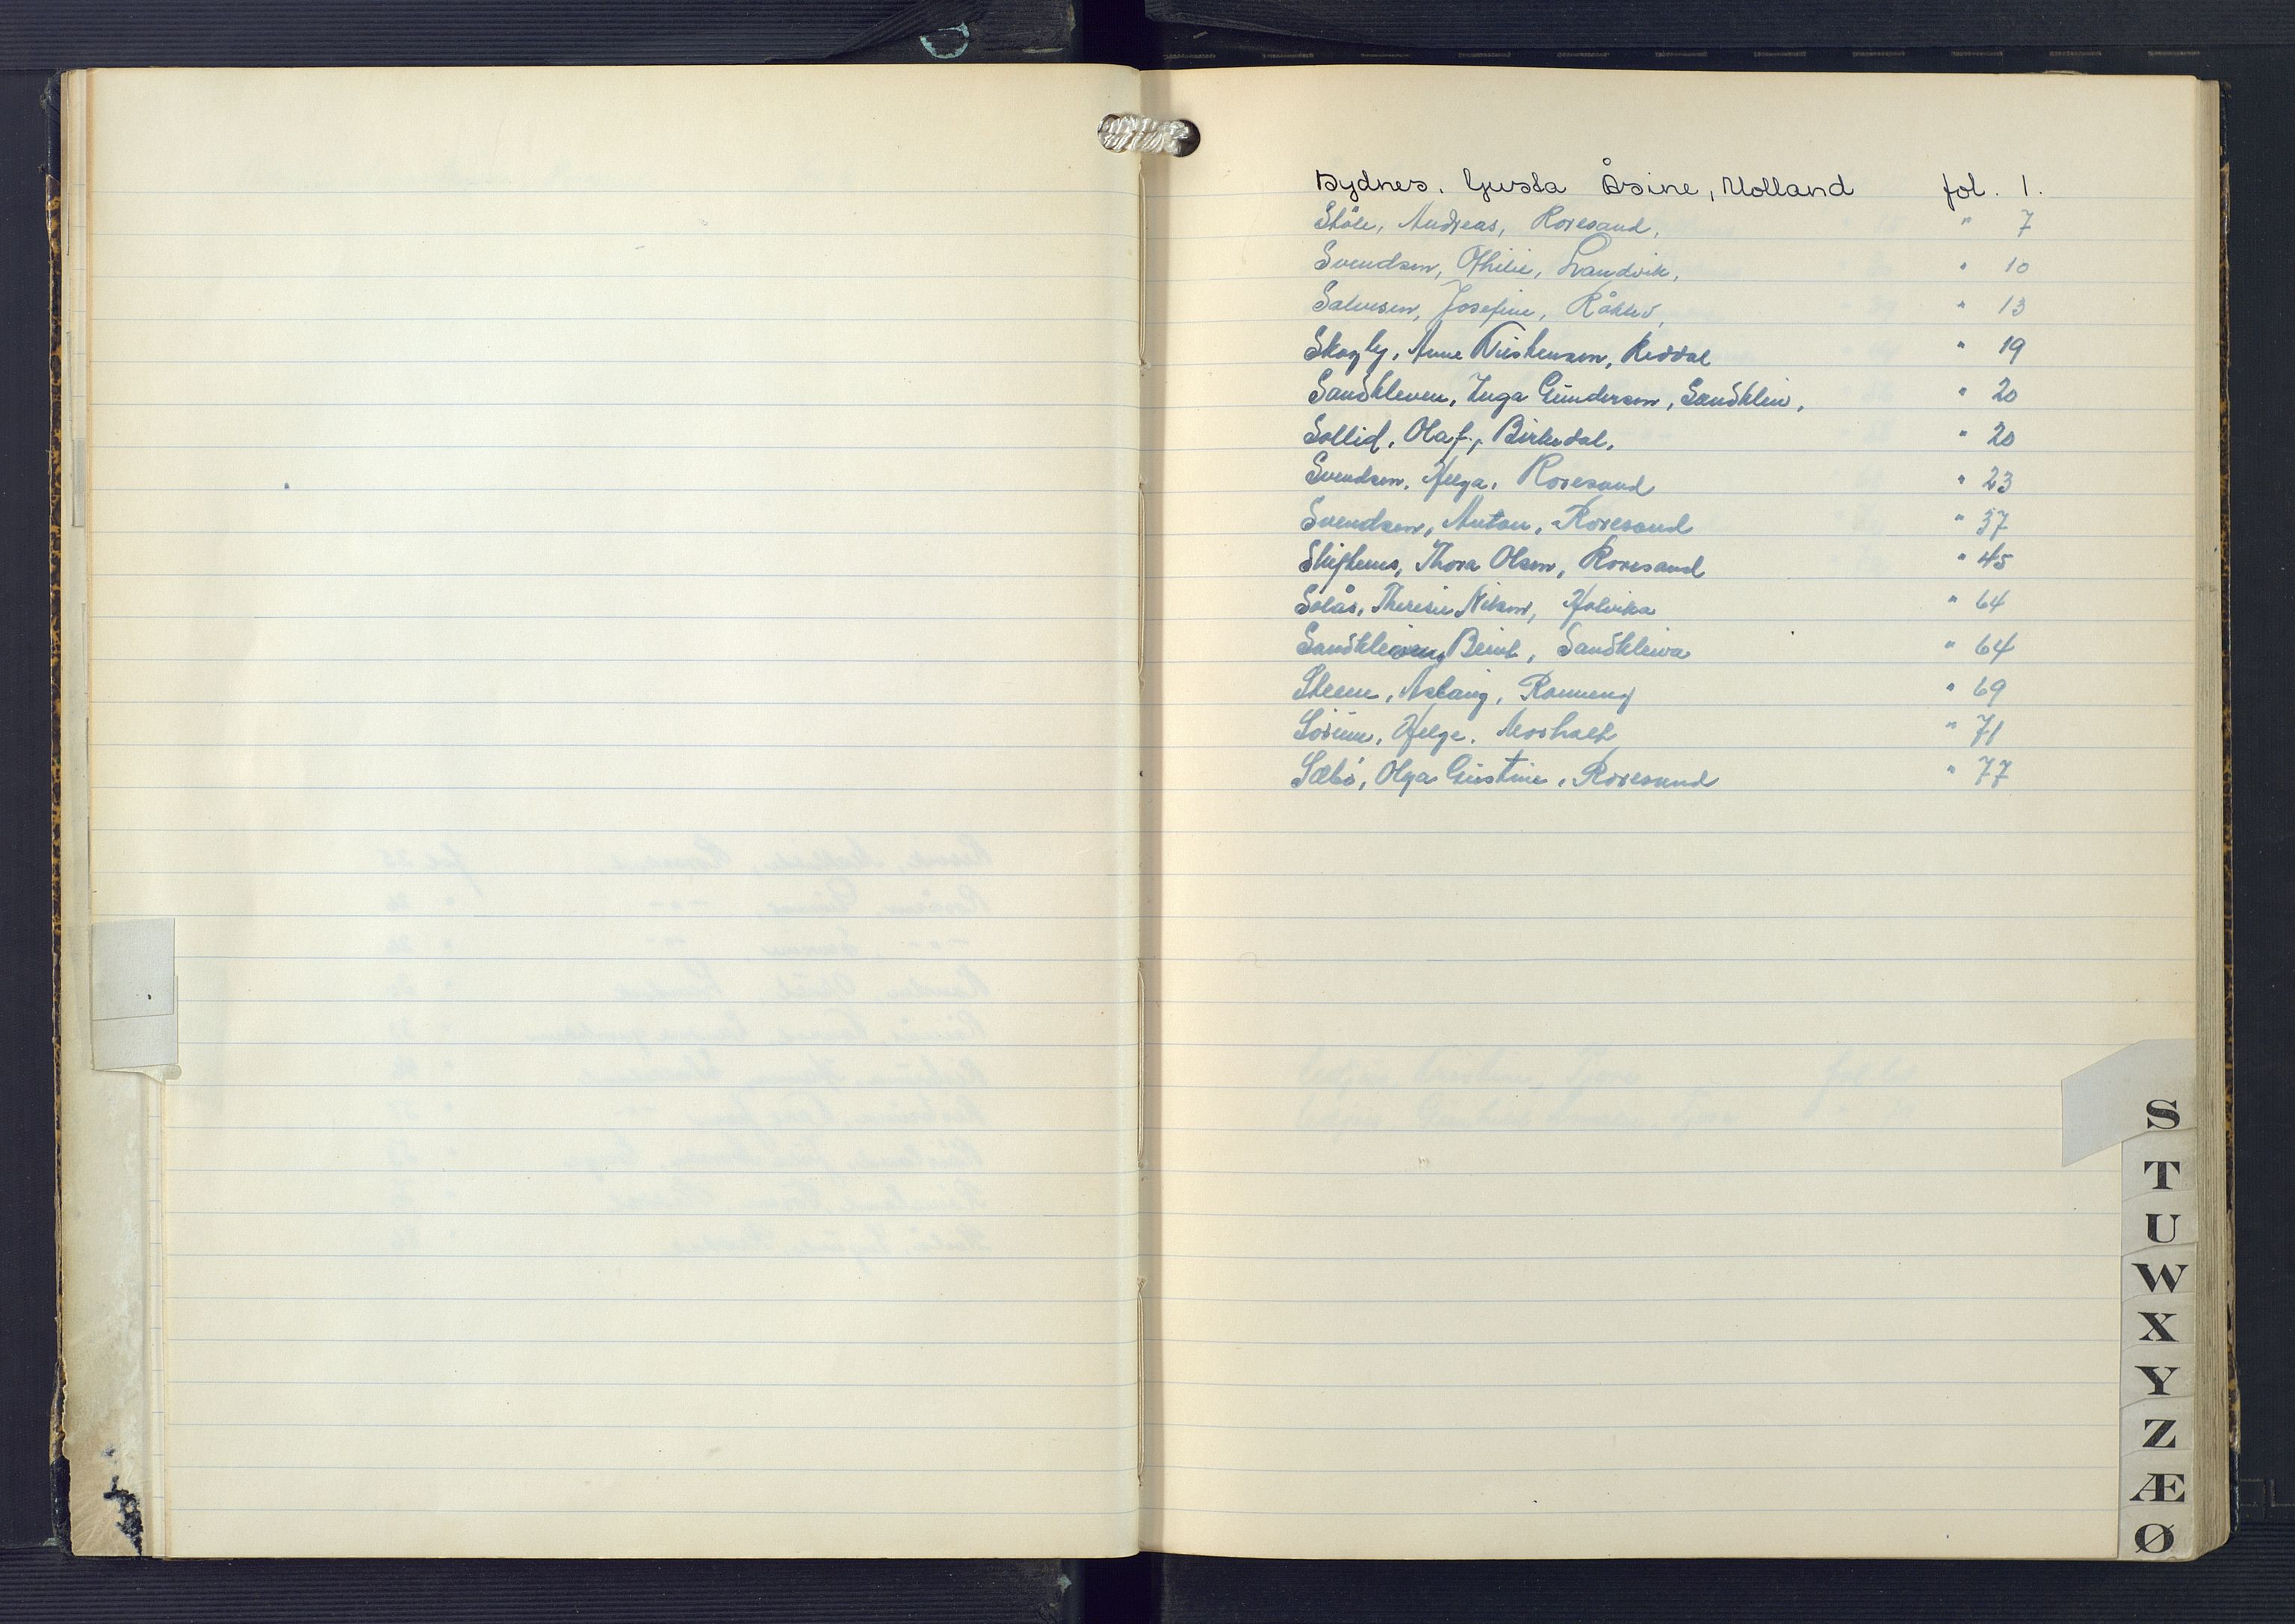 Sydnes. Gusta Åsine, Molland fol. 1.
Ståle, Andreas, Roresand, " 7
Svendsen, Othilie, Landvik, " 10
Salvesen, Josefine, " 13
Skogly, Anne Kristensen, Reddal " 19
Sandkleven, Inga Gundersen, Sandkleiv, " 20
Sollid, Olaf, Birkedal, " 20
Svendsen, Helga, Roresand " 23
Svendsen, Anton, Roresand " 37
Thora Olsen, Roresand " 45
Solås, Theresie Nilsen, Holvika " 64
Sandkleiven, Bernt, Sandkleiva " 64
Steene, Aslaug, Rønneng " 69
Helge, Mosholt " 71
Sæbø, Olga Gustine, Roresand " 77
S
T
U
W
X
Y
Z
Æ
Ø